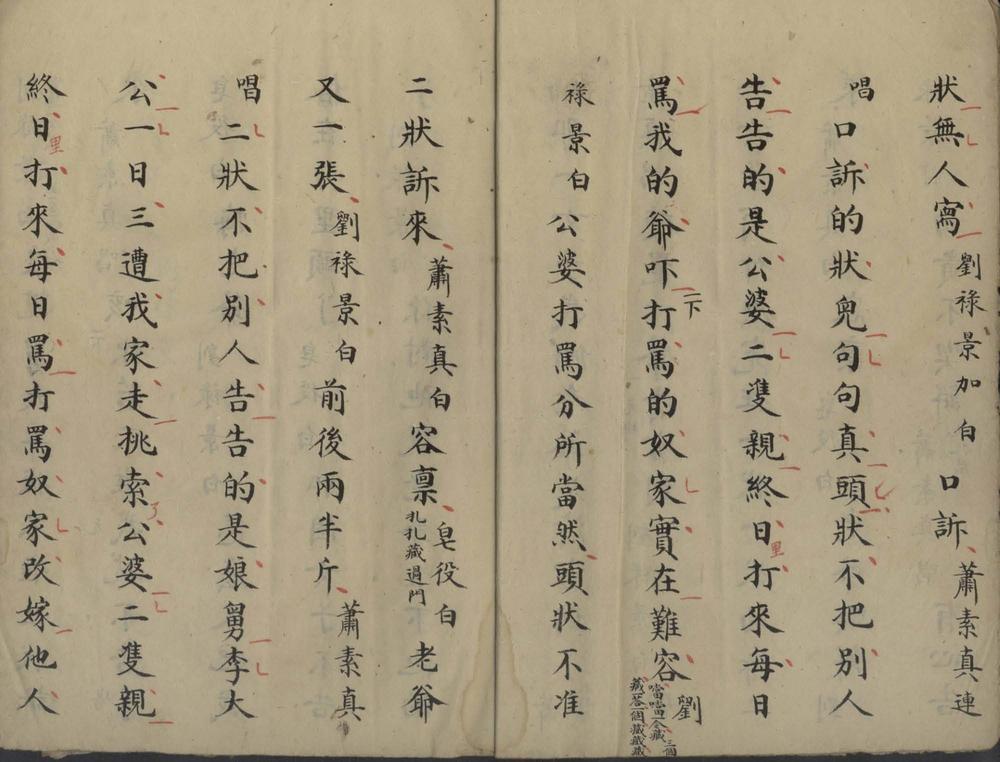 狀無人寫劉祿景加白口訴蕭素真連
唱口訴的狀兒句句真頭狀不把別人
告告的是公婆二隻親終日里打來每日
罵我的爺吓二下打罵的奴家實在難容劉
祿景白公婆打罵分所當然頭狀不准
二狀訴來蕭素真白容禀扎扎藏過門皂役白老爺
又一張劉祿景白前後兩半斤蕭素真
唱二狀不把別人告告的是娘舅李大
公一日三遭我家走挑索了公婆二隻親
終日里打來每日罵打罵奴家改嫁他人